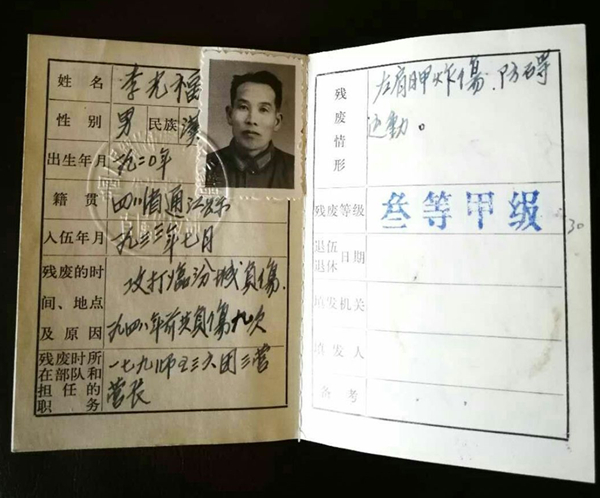 姓名 李光福
性别 男 民族 汉
出生年月 一九二〇年
籍贯 四川省通江县
入伍年月 一九三三年七月
残废的时间、地点及原因
攻打临汾城負傷.
一九四八年前共負傷九次
残废时所在部队和担任的职务
一七九师五三六团三营
营长
残废情形
左肩胛炸傷.防碍
运動。
残废等级 叁等甲级
退伍退休日期
填发机关
填发人
备考
30